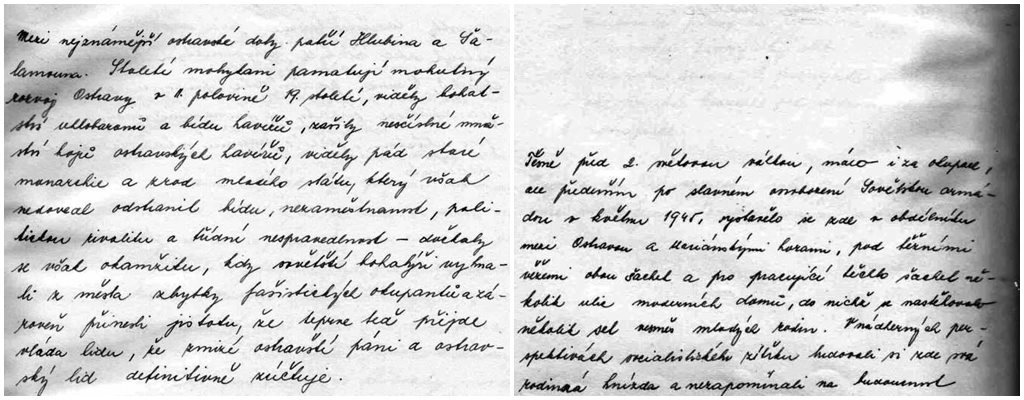 Mezi nejznámější ostravské doly patří Hlubina a Ša-
lamouna. Století mohykáni pamatují mohutný
rozvoj Ostravy v II. polovině 19. století, viděly bohat-
ství uhlobaronů a bídu havířů, zažily nesčíslné množ-
ství bojů ostravských havířů, viděly pád staré
monarchie a zrod mladého státu, který však
nedovedl odstranit bídu, nezaměstnanost, poli-
tickou rivalitu a třídní nespravedlnost – dočkaly
se však okamžiku, kdy sovětští bohatýři vyhna-
li z města zbytky fašistických okupantů a zá-
roveň přinesli jistotu, že teprve teď přijde
vláda lidu, že zmizí ostravští páni a ostrav-
ský lid definitivně zúčtuje.
Těsně před 2. světovou válkou, málo i za okupace,
ale především po slavném osvobození Sovětskou armá-
dou v květnu 1945, vystavělo se zde v obdélníku
mezi Ostravou a Mariánskými horami, pod těžními
věžemi obou šachet a pro pracující těchto šachet ně-
kolik ulic moderních domů, do nichž se nastěhovalo
několik set vesměs mladých rodin. V nádherných per-
spektivách socialistického zítřku budovali si zde svá
rodinná hnízda a nezapomínali na budoucnost